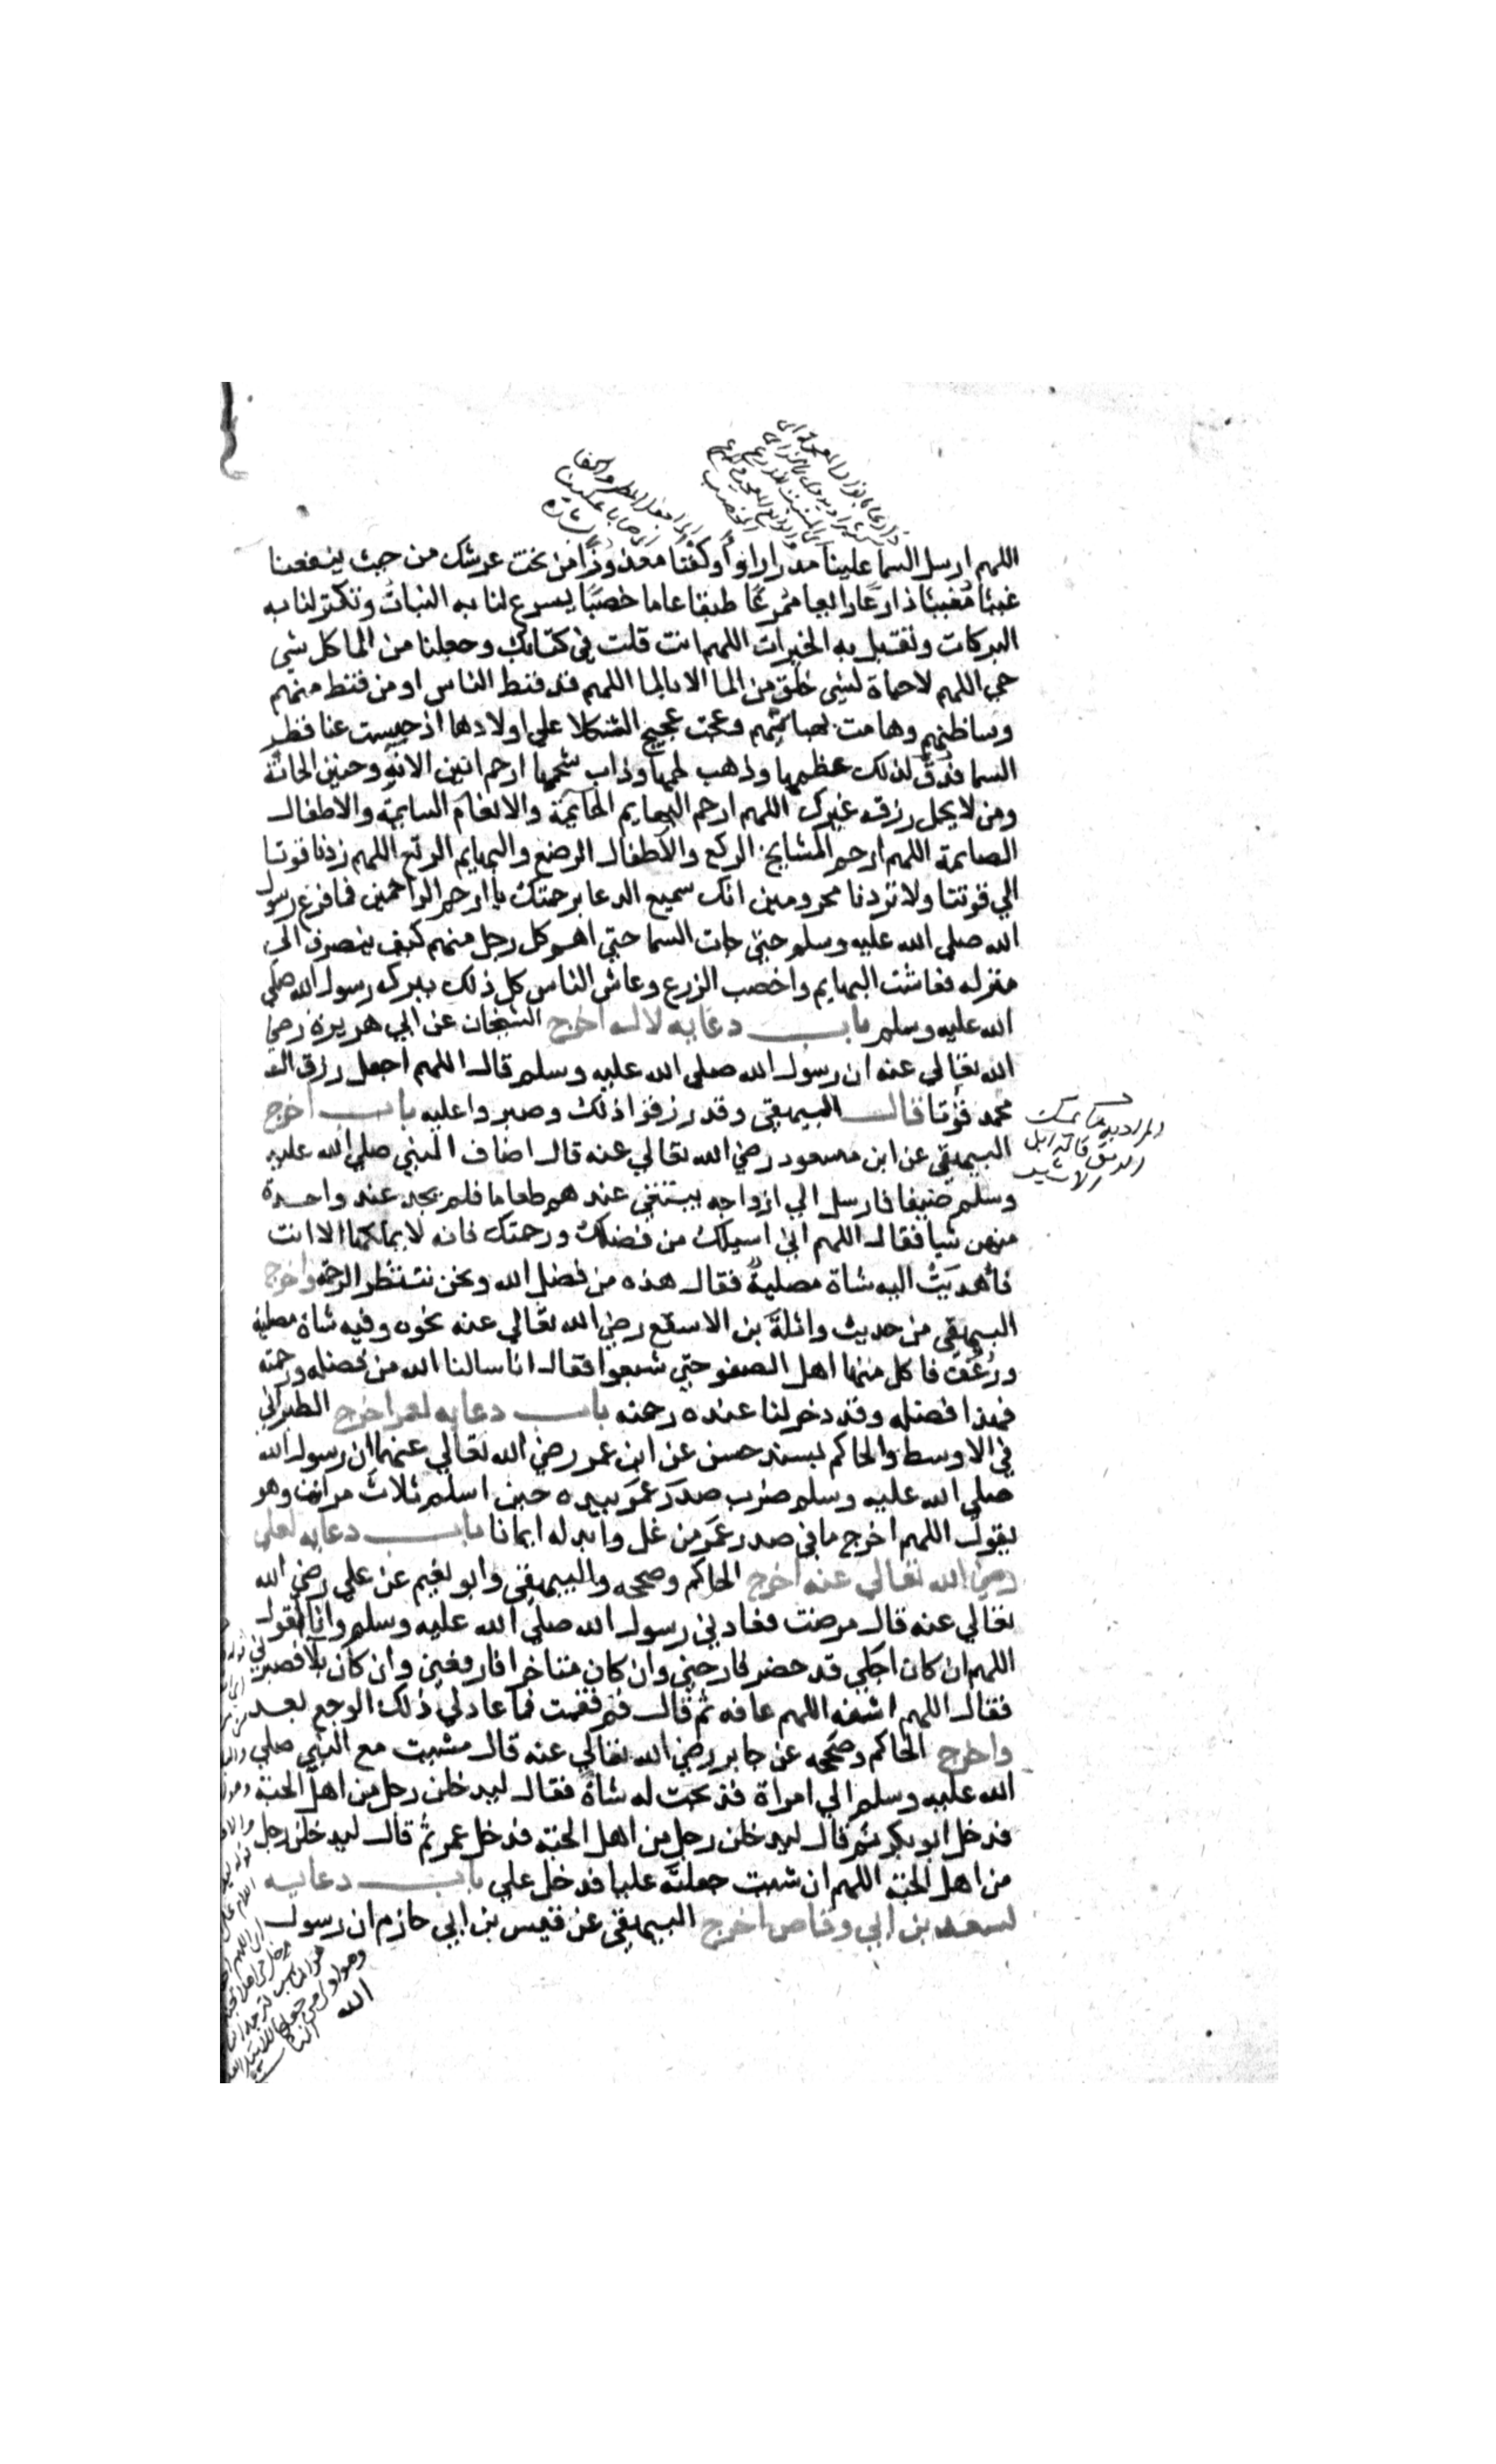 اللهم ارسل السما علينا مدرارا واوكفتا معذوذا من تحت عرشك من حيث ينفعنا
غيثا مغيثا ذارعا رابعا ممرعا طبقا عاما خصبا يسرع لنا به النبات وتكثر لنا به
البركات وتقتبل به الخيرات اللهم انت قلت في كتابك وجعلنا من الما كل شي
حي اللهم لا حياة لشي خلق من الما الا بالما اللهم قد قنط الناس او من قنط منهم
وسا ظنهم وهامت بهايمهم وعجت عجيج الثكلا علي اولادها اذ حبست عنا قطر
السما فدق لذلك عظمها وذهب لحمها وذاب شحمها ارحم انين الانة وحنين الحانة
ومن لا يحمل رزقه غيرك اللهم ارحم البهايم الحايمة والانعام السايمة والاطفال
الصايمة اللهم ارحم المشايخ الركع والاطفال الرضع والبهايم الرتع اللهم زدنا قوتا
الي قوتنا ولا تردنا محرومين انك سميع الدعا برحمتك يا ارحم الراحمين فما فرغ رسول
الله صلي الله عليه وسلم حتي جات السما حتي اهم كل رجل منهم كيف ينصرف الي
منزله فعاشت البهايم واخصب الزرع وعاش الناس كل ذلك ببركه رسول الله صلي
الله عليه وسلم باب دعايه لاله اخرج الشيخان عن ابي هريرة رضي
الله تعالي عنه ان رسول الله صلي الله عليه وسلم قال اللهم اجعل رزق ال
محمد قوتا قال البيهقي وقد رزقوا ذلك وصبروا عليه باب اخرج
البيهقي عن ابن مسعود رضي الله تعالي عنه قال اضاف النبي صلي الله عليه
وسلم ضيفا فارسل الي ازواجه يبتغي عندهم طعاما فلم يجد عند واحدة
منهن شيا فقال اللهم اني اسيلك من فضلك ورحمتك فانه لا يملكها الا انت
فأهديت اليه شاة مصلية فقال هذه من فضل الله ونحن ننتظر الرحمة واخرج
البيهقي من حديث واثلة بن الاسقع رضي الله تعالي عنه نحوه وفيه شاة مصلية
ورغف فاكل منها اهل الصفو حتي شبعوا فقال انا سالنا الله من فضله ورحمته
فهذا فضله وقد دخر لنا عنده رحمته باب دعايه لعمر اخرج الطبراني
في الاوسط والحاكم بسند حسن عن ابن عمر رضي الله تعالي عنهما ان رسول الله
صلي الله عليه وسلم ضرب صدر عمر بيده حين اسلم ثلاث مرات وهو
يقول اللهم اخرج ما في صدر عمر من غل وابدله ايمانا باب دعايه لعلي
رضي الله تعالي عنه اخرج الحاكم وصححه والبيهقي وابو نعيم عن علي رضي الله
تعالي عنه قال مرضت فعادني رسول الله صلي الله عليه وسلم وانا اقول
اللهم ان كان اجلي قد حضر فارحني وان كان متاخرا فارفعني وان كان بلا فصبرني
فقال اللهم اشفه اللهم عافه ثم قال قم فقمت فما عاد لي ذلك الوجع بعد
واخرج الحاكم وصححه عن جابر رضي الله تعالي عنه قال مشيت مع النبي صلي
الله عليه وسلم الي امراة فذبحت له شاة فقال ليدخلن رجل من اهل الجنة
فدخل ابو بكر ثم قال ليدخلن رجل من اهل الجنة فدخل عمر ثم قال ليدخلن رجل
من اهل الجنة اللهم ان شيت جعلته عليا فدخل علي باب دعايه
لسعد بن ابي وقاص اخرج البيهقي عن قيس بن ابي حازم ان رسول
الله